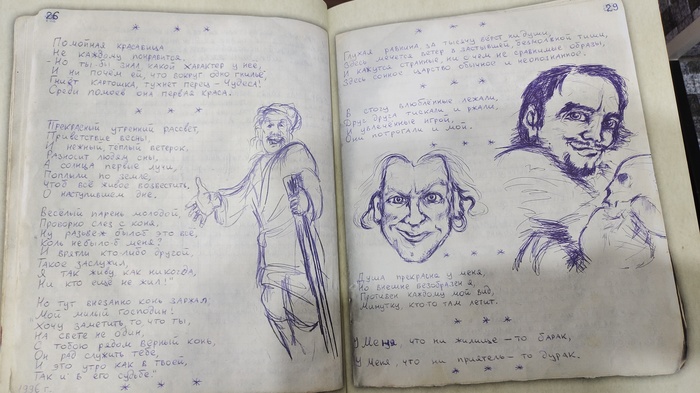 26
Помойная красавица
Не каждому понравится.
Но ты-б знал какой характер у неё,
И ни почём ей, что вокруг одно гнильё,
Гниёт картошка, тухнет перец – Чудеса!
Среди помоев она первая краса.
Прекрасный утренний рассвет,
Приветствие весны,
И нежный, тёплый ветерок,
Разносит людям сны,
А солнца первые лучи,
Поплыли по земле,
Чтоб всё живое возвестить,
О наступившем дне.
Весёлый парень молодой,
Проворно слез с коня.
"Ну разве ж было-б это всё,
Коль не было-б меня?
И врятли кто-либо другой,
Такое заслужил,
Я так живу как никогда,
Ни кто ещё не жил!"
Но тут внезапно конь заржал
"Мой милый господин!
Хочу заметить то, что ты,
На свете не один,
С тобою рядом верный конь,
Он рад служить тебе,
И это утро как в твоей,
Так и в его судьбе."
1996 г.
29
Гладкая равнина, за тысячу вёрст ни души,
Здесь мечется ветер в застывшей, безмолвной тиши,
И кажутся странные, ни с чем не сравнимые образы,
Здесь сонное царство обычное и неопознанное.
В стогу влюблённые лежали,
Друг друга тискали и ржали,
И увлечённые игрой,
Они потрогали и мой.
Душа прекрасна у меня,
Но внешне безобразен я,
Противен каждому мой вид,
Минутку, кто-то там летит.
У меня, что ни жилище – то барак,
У меня, что ни приятель – то дурак.